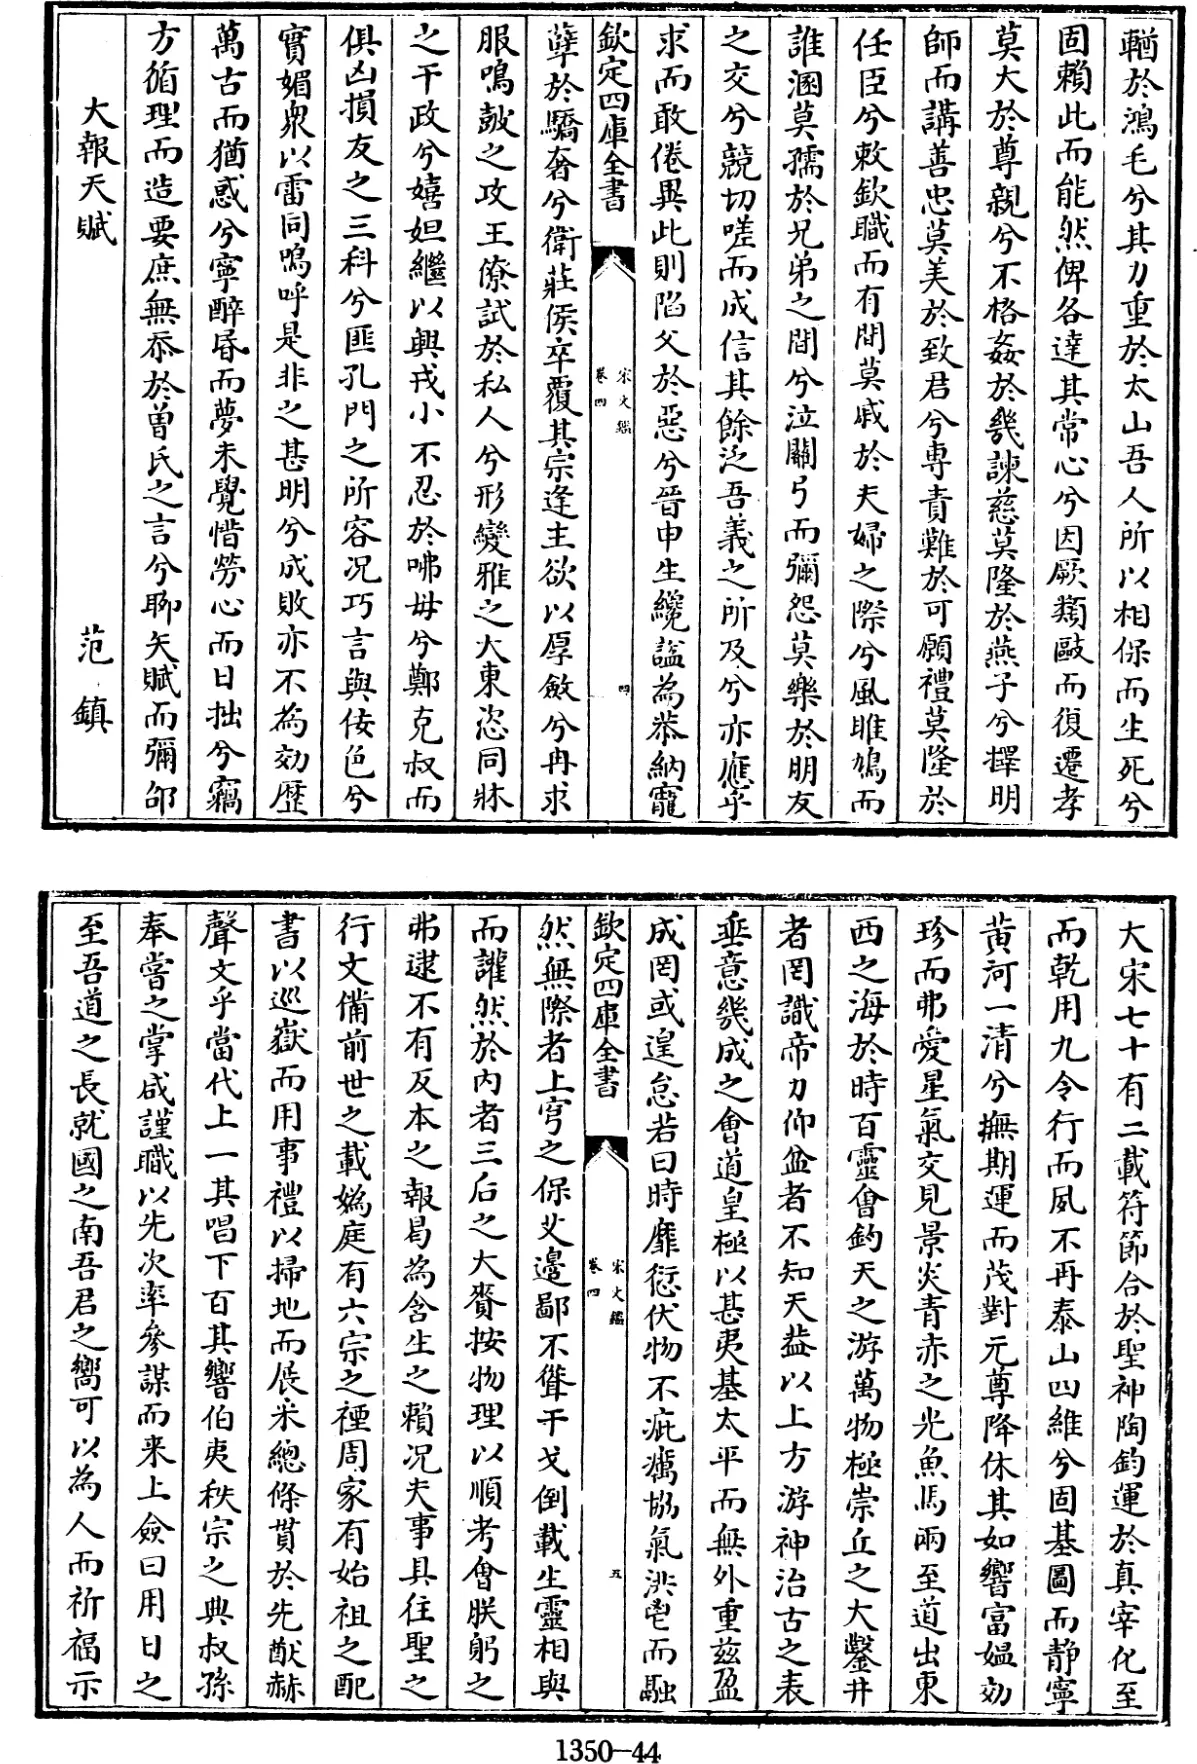 輶於鴻毛兮其力重於太山吾人所以相保而生死兮
固賴此而能然俾各達其常心兮因厥類敺而復遷孝
莫大於尊親兮不格姦於幾諫慈莫隆於燕子兮擇明
師而講善忠莫美於致君兮専責難於可願禮莫隆於
任臣兮敕欽職而有間莫戚於夫婦之際兮風雎鳩而
誰溷莫孺於兄弟之間兮泣關弓而彌怨莫樂於朋友
之交兮競切嗟而成信其餘泛吾義之所及兮亦應乎
求而敢倦異此則陷父於惡兮晉申生纔諡為恭納寵
欽定四庫全書
宋文鑑
卷四
四
孽於驕奢兮衛莊侯卒覆其宗逢主欲以厚斂兮冉求
服鳴鼓之攻王僚試於私人兮形變雅之大東恣同牀
之干政兮嬉妲繼以興戎小不忍於咈毋兮鄭克叔而
俱凶損友之三科兮匪孔門之所容况巧言與佞色兮
實媚衆以雷同嗚呼是非之甚明兮成敗亦不為効歴
萬古而猶惑兮寧醉昬而夢未覺惜勞心而日拙兮竊
方循理而造要庶無忝於曽氏之言兮聊矢賦而彌邵
大報天賦 范鎮
大宋七十有二載符節合於聖神陶鈞運於真宰化至
而乾用九令行而風不再泰山四維兮固基圖而靜寧
黃河一清兮撫期運而茂對元尊降休其如響富媪効
珍而弗愛星氣交見景炎青赤之光魚馬兩至道出東
西之海於時百靈會鈞天之游萬物極崇丘之大鑿井
者罔識帝力仰盆者不知天益以上方游神治古之表
垂意幾成之會道皇極以甚夷基太平而無外重兹盈
成罔或遑怠若曰時靡愆伏物不疵癘協氣洪鬯而融
欽定四庫全書
宋文鑑
卷四
五
然無際者上穹之保乂邊鄙不聳干戈倒載生靈相與
而讙然於内者三后之大賚按物理以順考會朕躬之
弗逮不有反本之報曷為含生之賴况夫事具往聖之
行文備前世之載嬀庭有六宗之禋周家有始祖之配
書以巡嶽而用事禮以掃地而展采總條貫於先猷赫
聲文乎當代上一其唱下百其響伯夷秩宗之典叔孫
奉嘗之掌咸謹職以先次率參謀而来上僉曰用日之
至吾道之長就國之南吾君之嚮可以為人而祈福示
1350—44